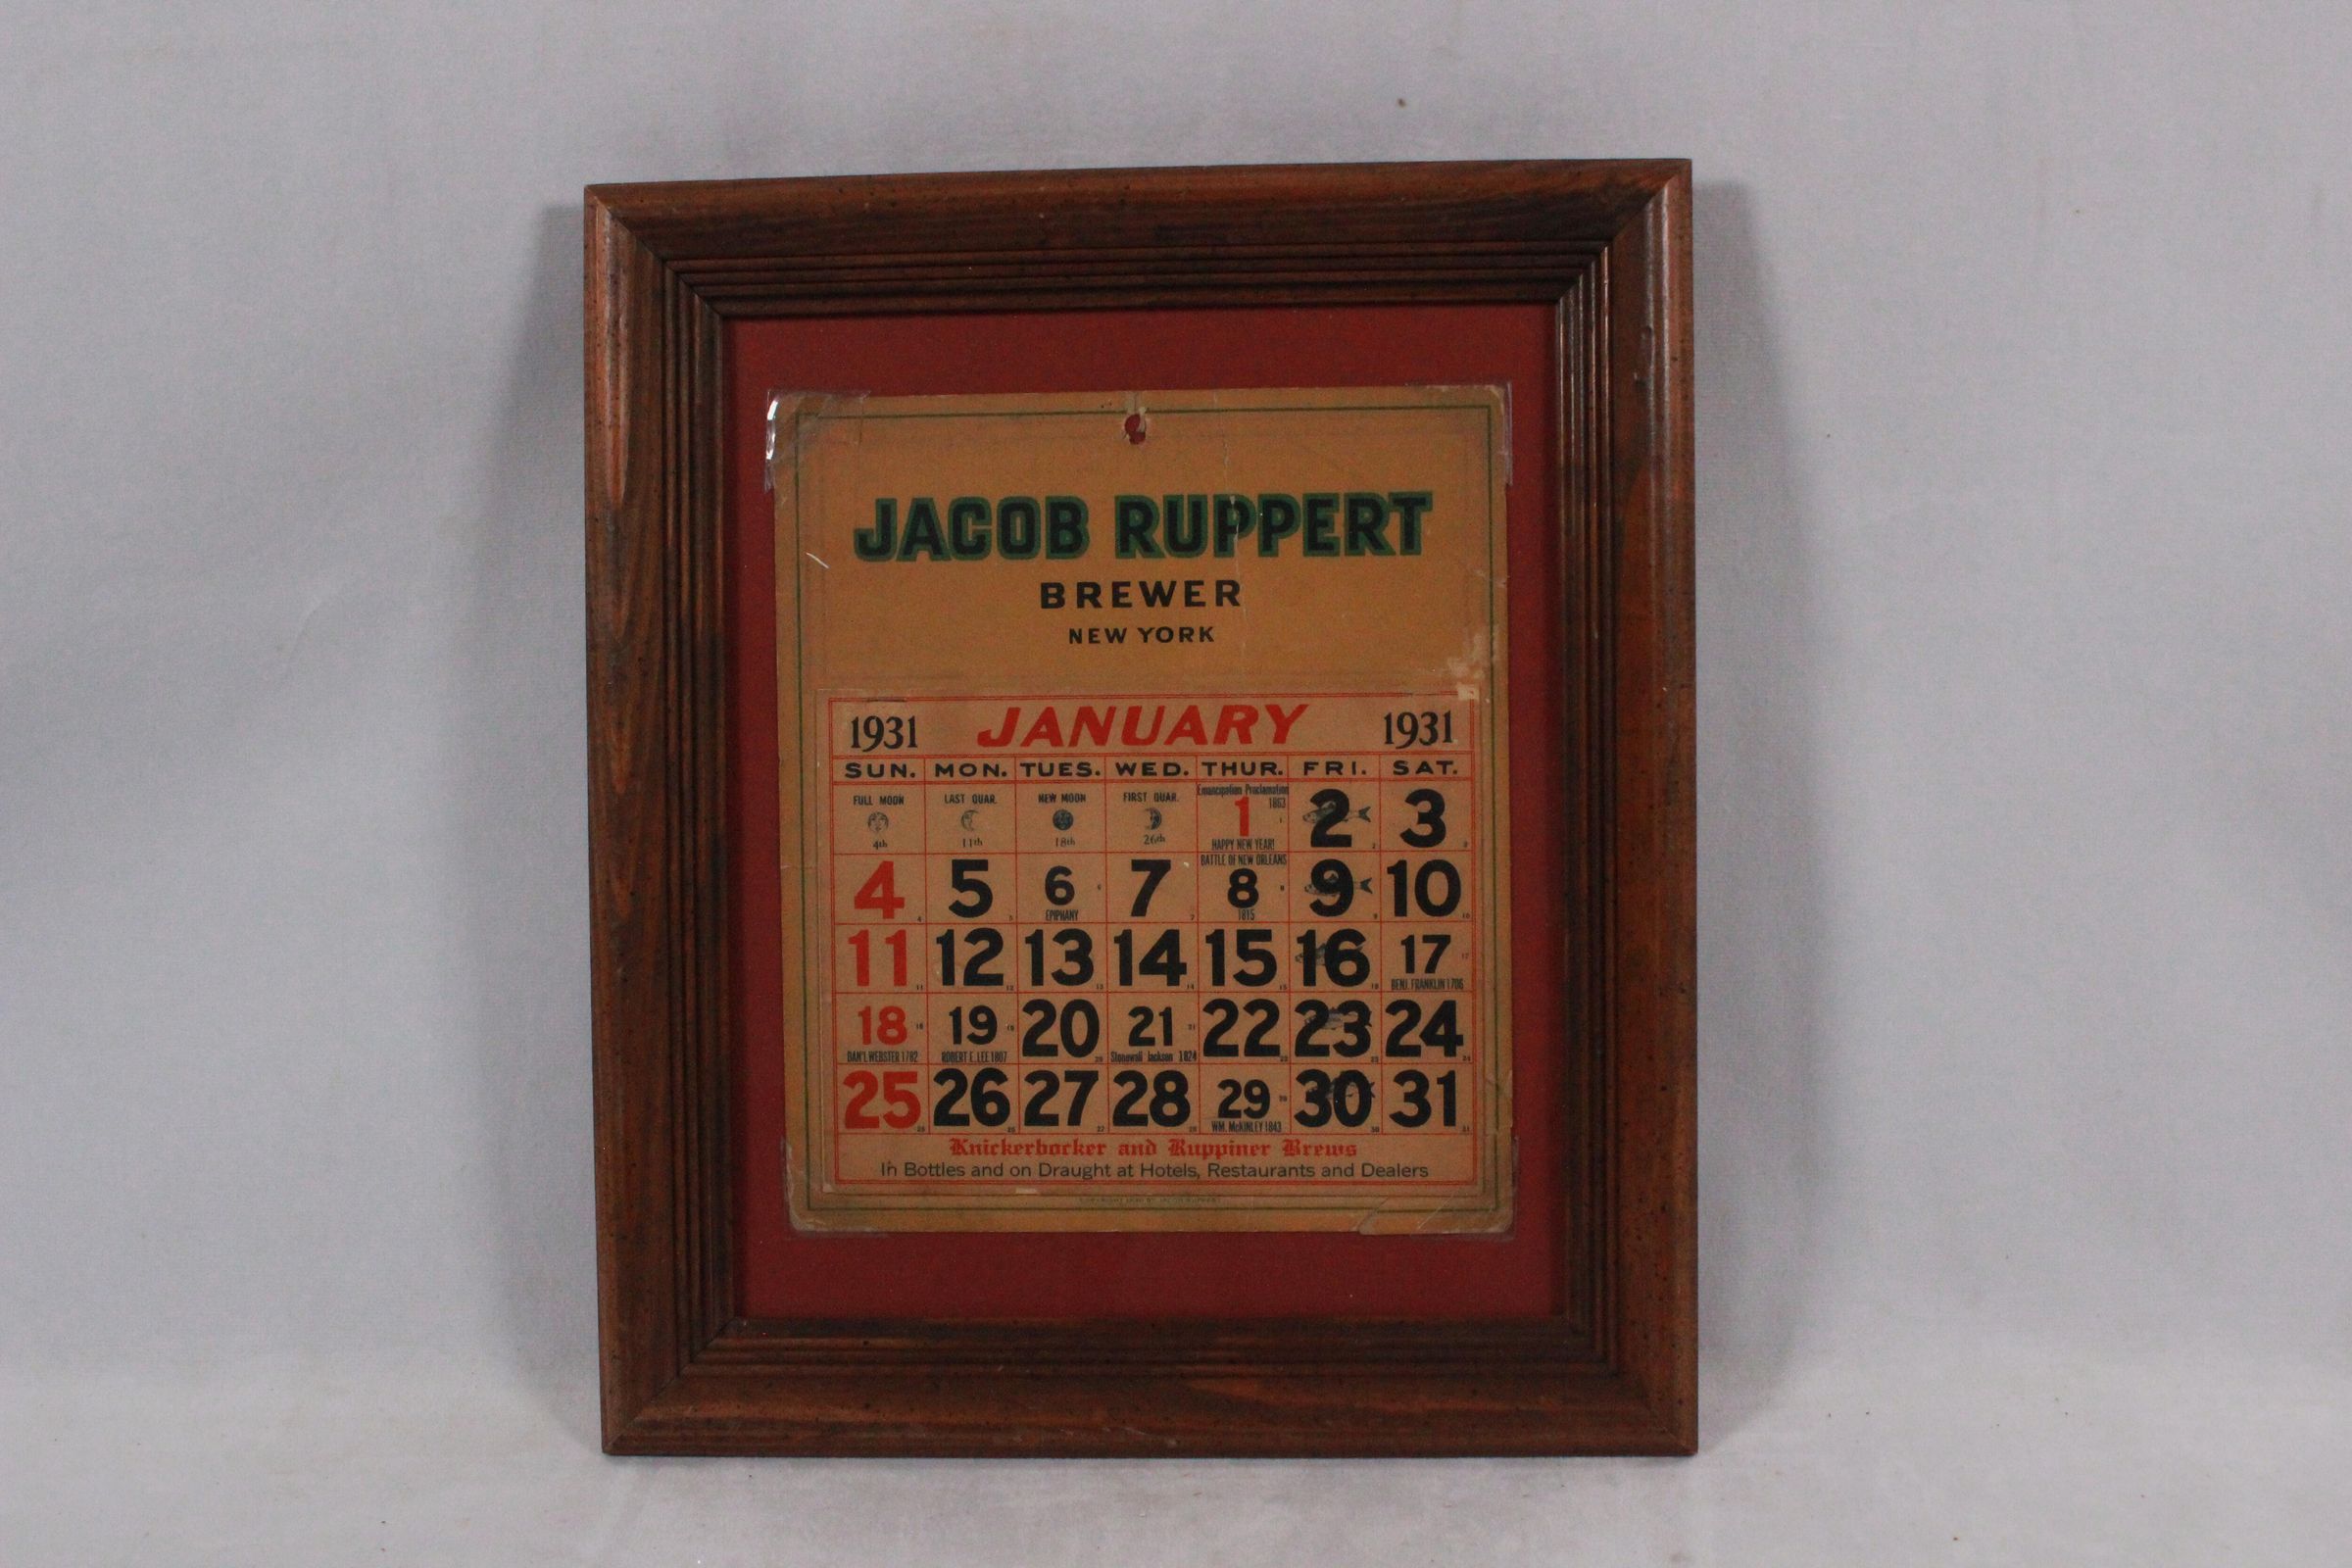 JACOB RUPPERT
BREWER
NEW YORK
1931 JANUARY 1931
SUN. MON. TUES. WED. THUR. FRI. SAT.
FULL MOON 4th
LAST QUAR. 11th
NEW MOON 18th
FIRST QUAR. 26th
Emancipation Proclamation 1863 1 HAPPY NEW YEAR!
2 3
4 5 6 EPIPHANY 7 BATTLE OF NEW ORLEANS 8 1815 9 10
11 12 13 14 15 16 17 BENJ. FRANKLIN 1706
18 DAN'L WEBSTER 1782 19 ROBERT E. LEE 1807 20 21 Stonewall Jackson 1824 22 23 24
25 26 27 28 29 WM. McKINLEY 1843 30 31
Knickerbocker and Ruppiner Brews
In Bottles and on Draught at Hotels, Restaurants and Dealers